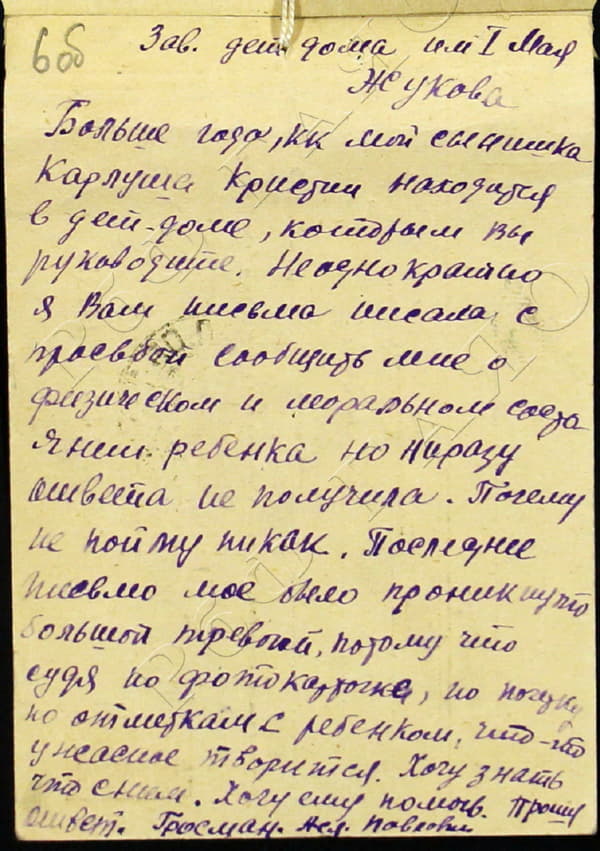 6об
Зав. дет. дома им I Мая
Жукова
Больше года, кк мой сынишка
Карлуша Кристин находится
в дет-доме, которым Вы
руководите. Неоднократно
я Вам письма писала с
просьбой сообщить мне о
физическом и моральном состо
янии ребенка но ниразу
ответа не получила. Почему
не пойму никак. Последнее
письмо мое было проникнуто
большой тревогой, потому что
судя по фотокарточке, по почерку
по отметкам с ребенком, что-то
ужасное творится. Хочу знать
что с ним. Хочу ему помочь. Прошу
ответ. Гросман.